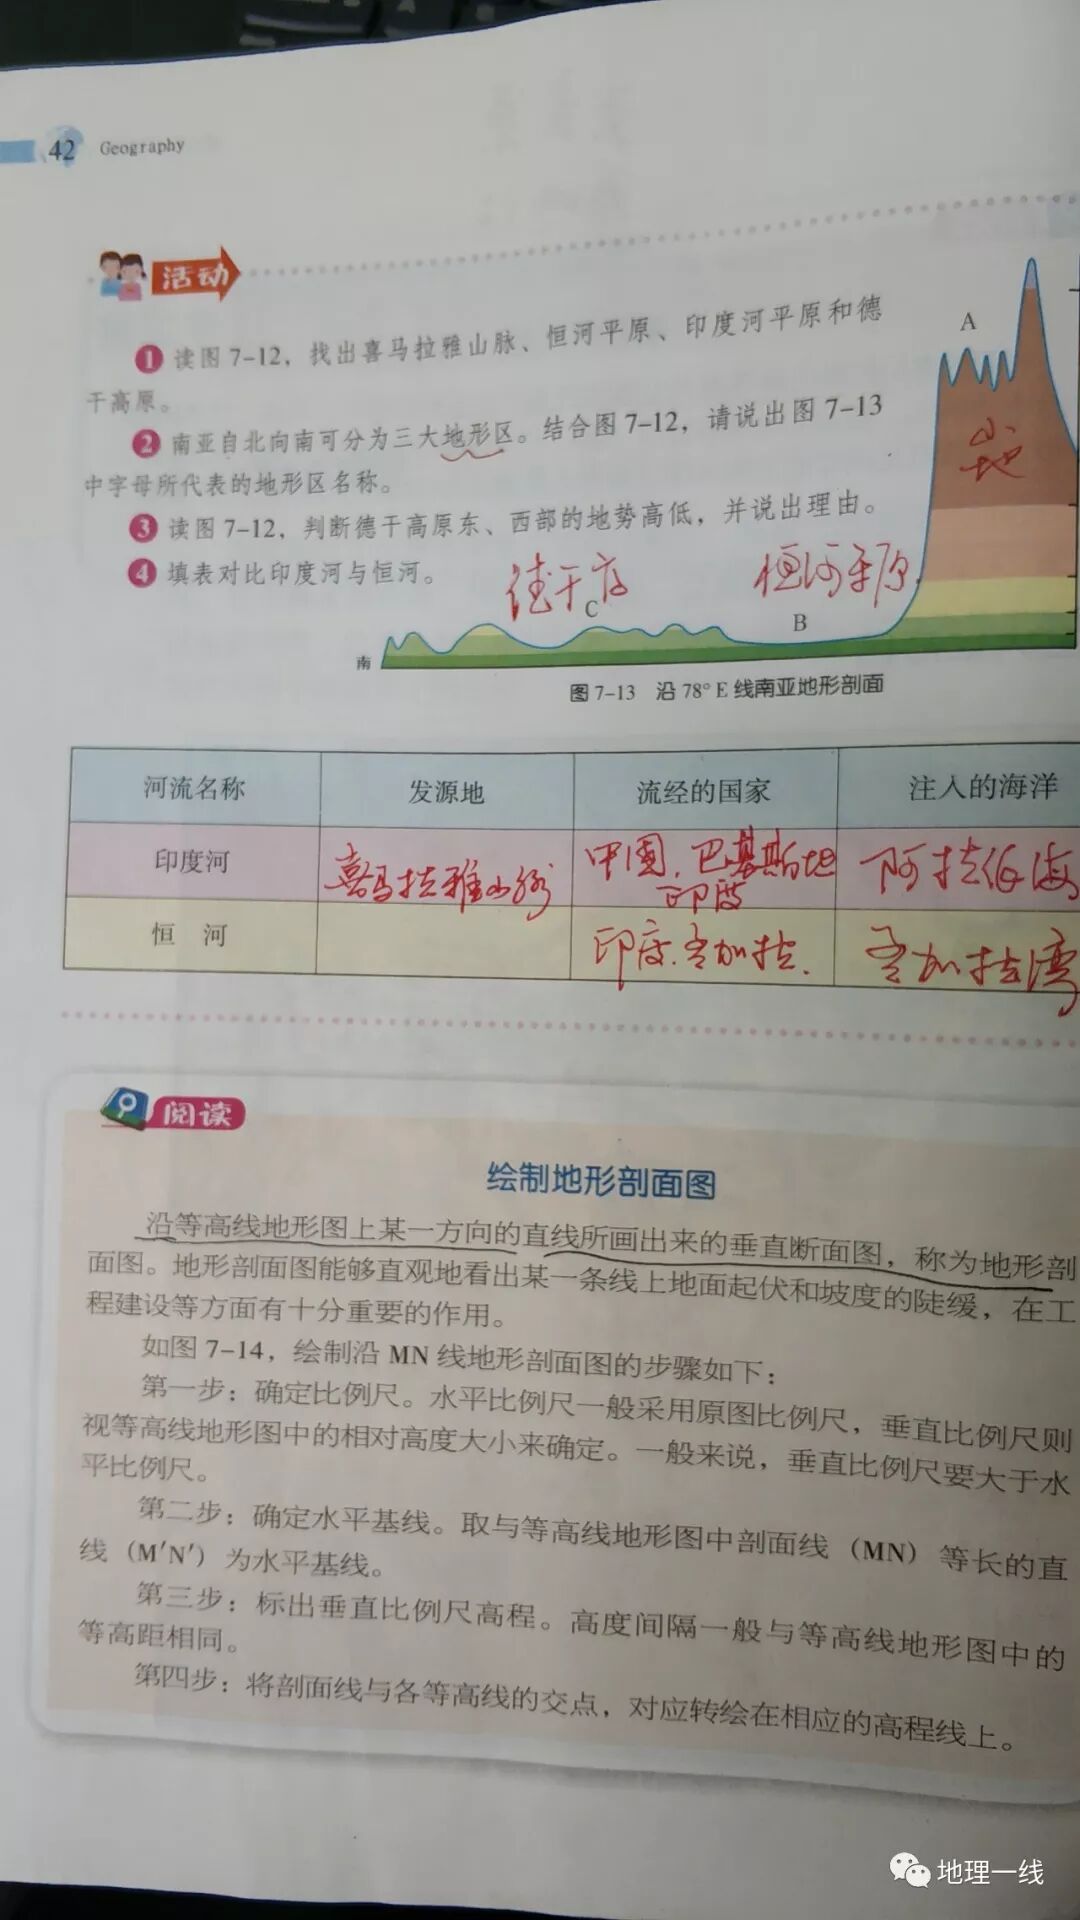 42 Geography
活动
1 读图7-12，找出喜马拉雅山脉、恒河平原、印度河平原和德
干高原。
2 南亚自北向南可分为三大地形区。结合图7-12，请说出图7-13
中字母所代表的地形区名称。
3 读图7-12，判断德干高原东、西部的地势高低，并说出理由。
4 填表对比印度河与恒河。
A
山地
德干高
恒河平原
C
B
南
图7-13 沿78°E线南亚地形剖面
河流名称 发源地 流经的国家 注入的海洋
印度河 喜马拉雅山脉 中国、巴基斯坦 阿拉伯海
印度
恒 河 印度、孟加拉、 孟加拉湾
阅读
绘制地形剖面图
沿等高线地形图上某一方向的直线所画出来的垂直断面图，称为地形剖
面图。地形剖面图能够直观地看出某一条线上地面起伏和坡度的陡缓，在工
程建设等方面有十分重要的作用。
如图7-14，绘制沿MN线地形剖面图的步骤如下：
第一步：确定比例尺。水平比例尺一般采用原图比例尺，垂直比例尺则
视等高线地形图中的相对高度大小来确定。一般来说，垂直比例尺要大于水
平比例尺。
第二步：确定水平基线。取与等高线地形图中剖面线（MN）等长的直
线（M′N′）为水平基线。
第三步：标出垂直比例尺高程。高度间隔一般与等高线地形图中的
等高距相同。
第四步：将剖面线与各等高线的交点，对应转绘在相应的高程线上。
地理一线